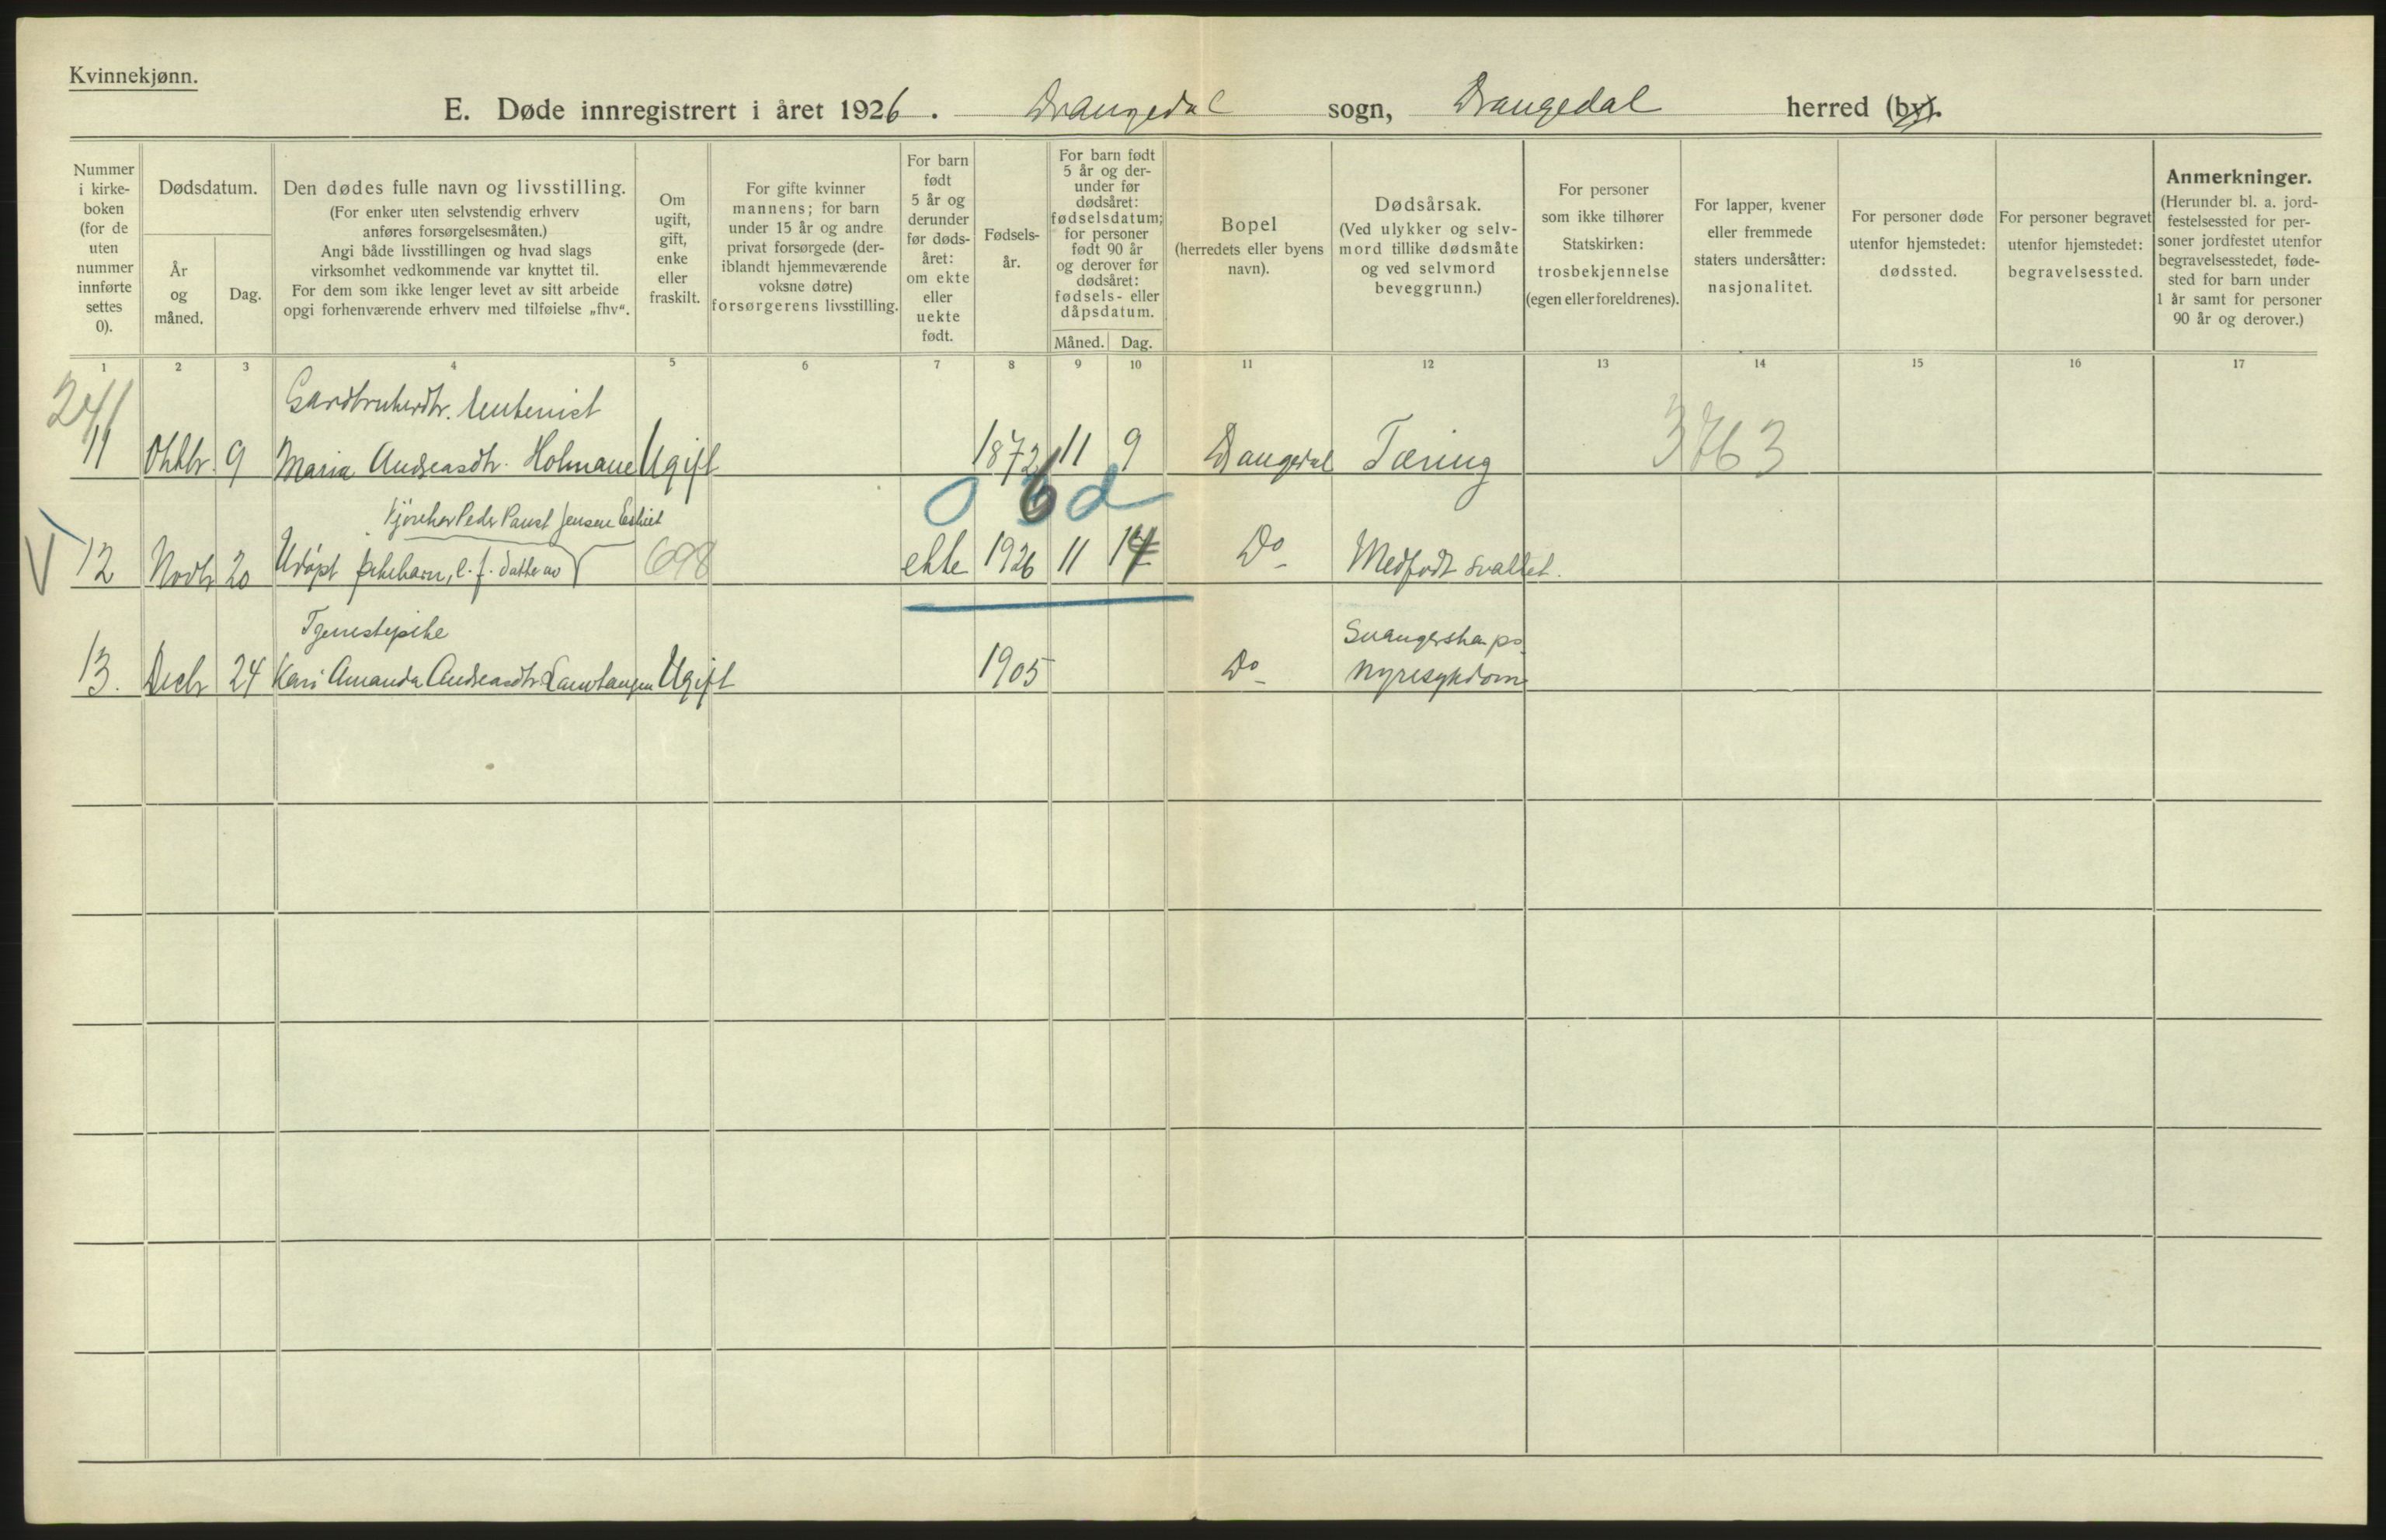 Kvinnekjønn.
E. Døde innregistrert i året 1926. Drangedal sogn, Drangedal herred (by).
Nummer
i kirke-
boken
(for de
uten
nummer
innførte
settes
0).
Dødsdatum.
År
og
måned.
Dag.
Den dødes fulle navn og livsstilling.
(For enker uten selvstendig erhverv
anføres forsørgelsesmåten.)
Angi både livsstillingen og hvad slags
virksomhet vedkommende var knyttet til.
For dem som ikke lenger levet av sitt arbeide
opgi forhenværende erhverv med tilføielse „fhv“.
Om
ugift,
gift,
enke
eller
fraskilt.
For gifte kvinner
mannens; for barn
under 15 år og andre
privat forsørgede (der-
iblandt hjemmeværende
voksne døtre)
forsørgerens livsstilling.
For barn
født
5 år og
derunder
før døds-
året:
om ekte
eller
uekte
født.
Fødsels-
år.
For barn født
5 år og der-
under før
dødsåret:
fødselsdatum;
for personer
født 90 år
og derover før
dødsåret:
fødsels- eller
dåpsdatum.
Måned. Dag.
Bopel
(herredets eller byens
navn).
Dødsårsak.
(Ved ulykker og selv-
mord tillike dødsmåte
og ved selvmord
beveggrunn.)
For personer
som ikke tilhører
Statskirken:
trosbekjennelse
(egen eller foreldrenes).
For lapper, kvener
eller fremmede
staters undersåtter:
nasjonalitet.
For personer døde
utenfor hjemstedet:
dødssted.
For personer begravet
utenfor hjemstedet:
begravelsessted.
Anmerkninger.
(Herunder bl. a. jord-
festelsessted for per-
soner jordfestet utenfor
begravelsesstedet, føde-
sted for barn under
1 år samt for personer
90 år og derover.)
1 2 3 4 5 6 7 8 9 10 11 12 13 14 15 16 17
241
Gardbrukerdtr.
11 Oktbr. 9 Maria Andreasdtr. Holmane Ugift 1872 11 9 Drangedal Tæring 3763
0 6 d
Peder Jensen
V 12 Novbr 20 Udøpt pikebarn, l. f. datter av 698 ekte 1926 11 Do Medfødt svakhet.
Tjenestepike Svangerskaps
13. Decbr 24 Kari Amanda Andreasdtr. Ugift 1905 Do nyresykdom